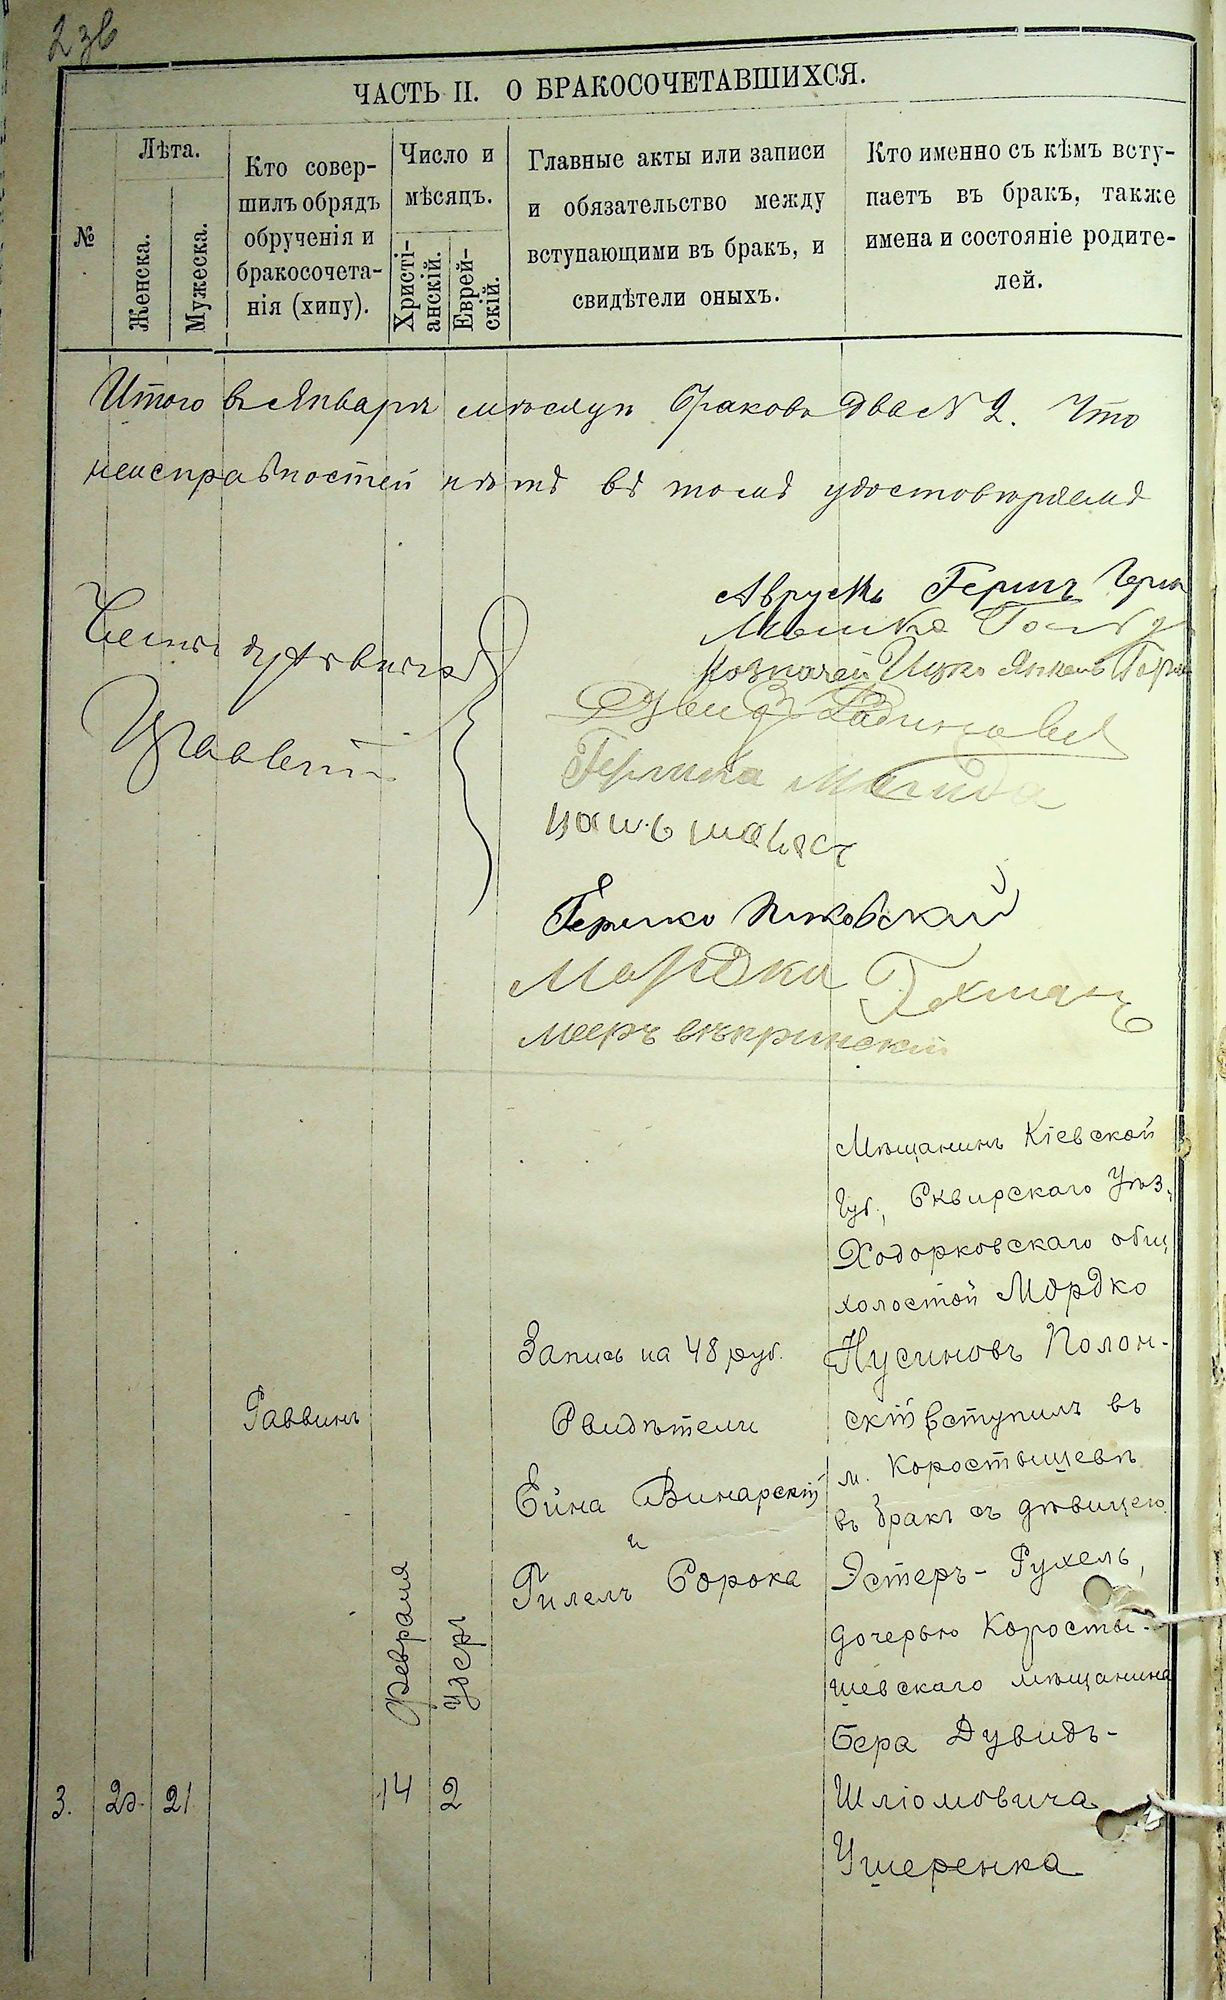 236
ЧАСТЬ II. О БРАКОСОЧЕТАВШИХСЯ.
№
Лѣта.
Женска.
Мужеска.
Кто совер-
шилъ обрядъ
обрученія и
бракосочета-
нія (хипу).
Число и
мѣсяцъ.
Христі-
анскій.
Еврей-
скій.
Главные акты или записи
и обязательство между
вступающими въ бракъ, и
свидѣтели оныхъ.
Кто именно съ кѣмъ всту-
паетъ въ бракъ, также
имена и состояніе родите-
лей.
Итого въ Январѣ мѣсяцѣ браковъ два № 2. Что
неисправностей нѣтъ въ томъ удостовѣряемъ
Члены
Августъ Герцъ
Мошко
Казначей Ицко Янкель
Гершко
Мордко Гехманъ
Мееръ
3.
20.
21
Раввинъ
Февраля
14
Удеръ
2
Запись на 48 руб.
Свидѣтели
Ейна Винарскій
и
Гилелъ Сорока
Мѣщанинъ Кіевской
Губ., Сквирскаго Уѣз.
Ходорковскаго общ
холостой Мордко
Нусиновъ Полон-
скій вступилъ въ
м. Коростышевѣ
въ бракъ съ дѣвицею
Эстеръ-Рухель,
дочерью Коросты-
шевскаго мѣщанина
Бера Дувидъ-
Шліомовича
Ушеренка